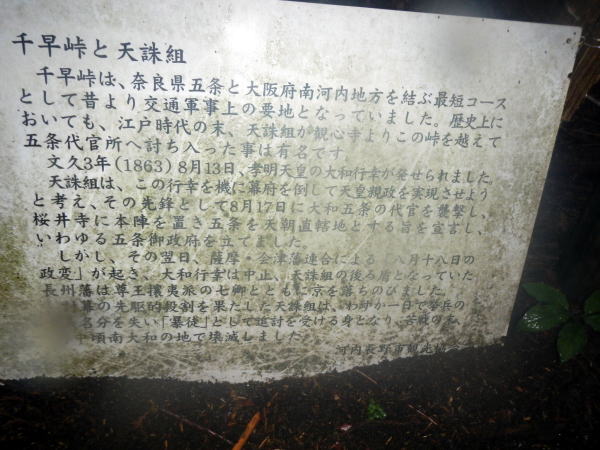 千早峠と天誅組
千早峠は、奈良県五条と大阪府南河内地方を結ぶ最短コース
として昔より交通軍事上の要地となっていました。歴史上に
おいても、江戸時代の末、天誅組が観心寺よりこの峠を越えて
五条代官所へ討ち入った事は有名です
文久3年(1863)8月13日、孝明天皇の大和行幸が発せられました
天誅組は、この行幸を機に幕府を倒して天皇親政を実現させよう
と考え、その先鋒として8月17日に大和五条の代官を襲撃し、
桜井寺に本陣を置き五条を天朝直轄地とする旨を宣言し、
いわゆる五条御政府を立てました。
しかし、その翌日、薩摩・会津藩連合による「八月十八日の
政変」が起き、大和行幸は中止、天誅組の後ろ盾となっていた
長州藩は尊王攘夷派の七卿とともに京を落ちのびました。
幕の先駆的役割を果たした天誅組は、わずか一日で挙兵の
名分を失い「暴徒」として追討を受ける身となり、苦戦の末、
中頃南大和の地で壊滅しました
河内長野市観光協